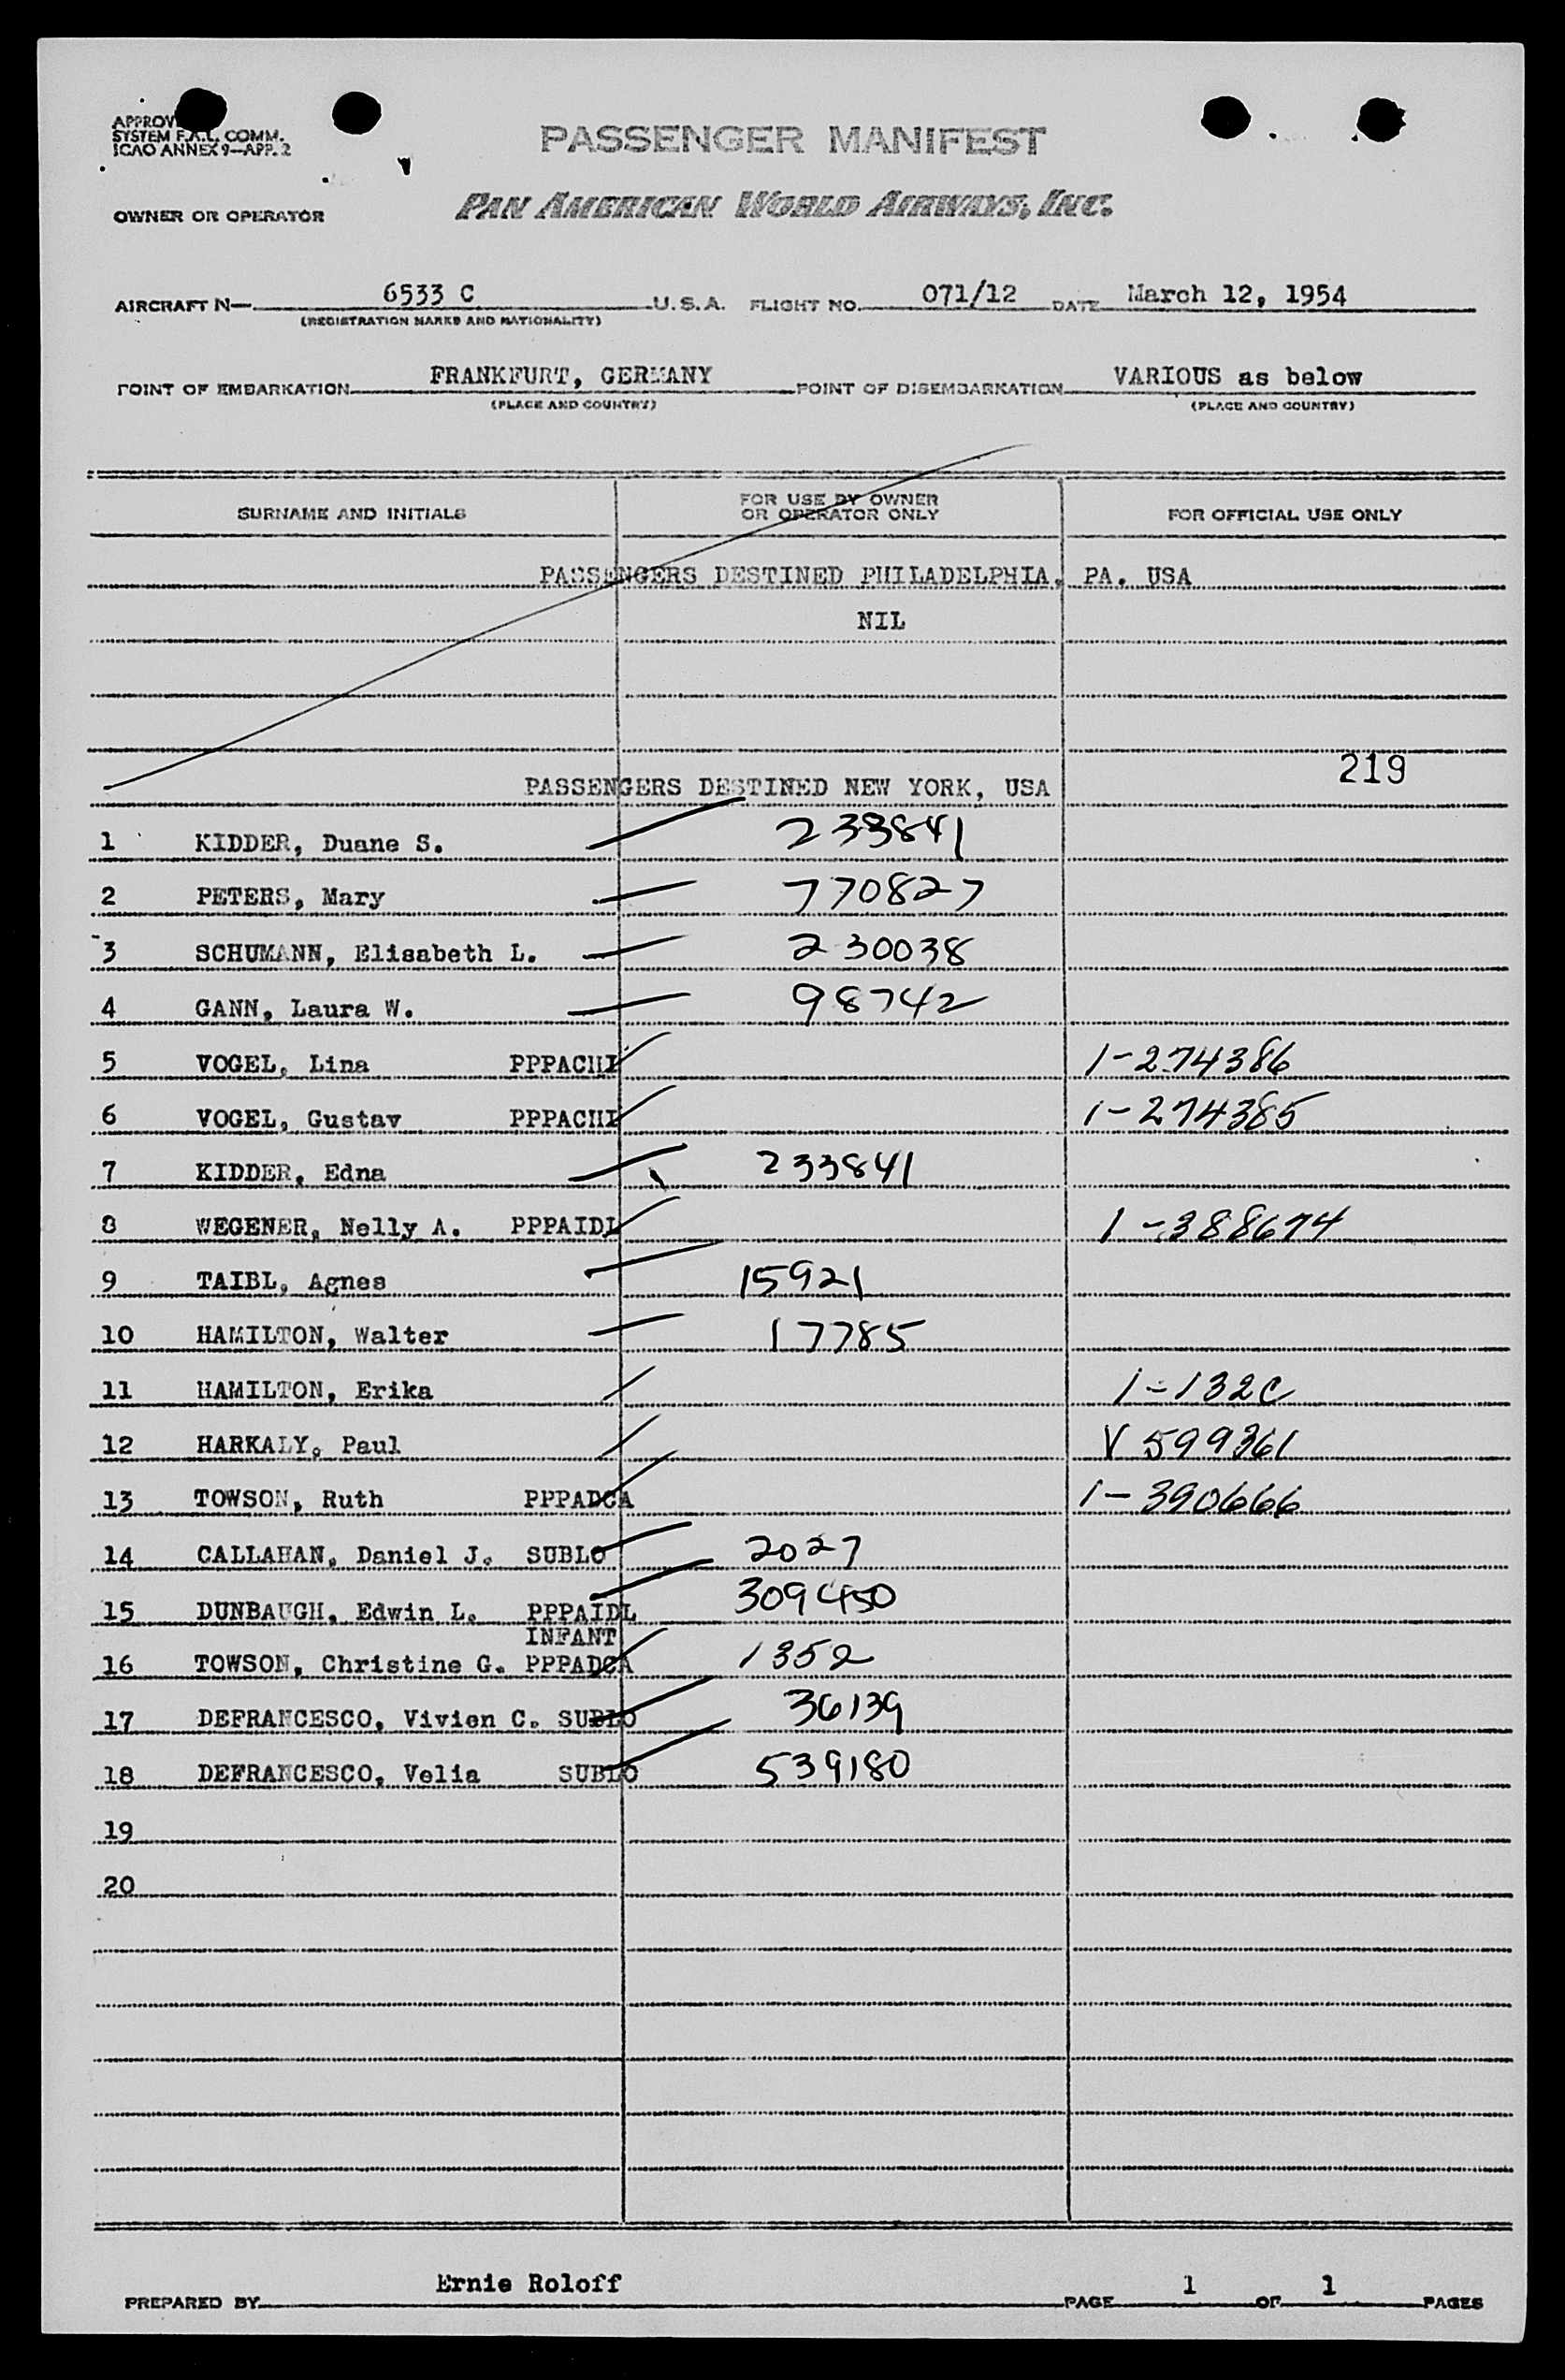 APPROV
SYSTEM F.A.L. COMM.
ICAO ANNEX 9—APP. 2
PASSENGER MANIFEST
OWNER OR OPERATOR PAN AMERICAN WORLD AIRWAYS, INC.
AIRCRAFT N— 6533 C U.S.A. FLIGHT NO. 071/12 DATE March 12, 1954
(REGISTRATION MARKS AND NATIONALITY)
POINT OF EMBARKATION FRANKFURT, GERMANY POINT OF DISEMBARKATION VARIOUS as below
(PLACE AND COUNTRY) (PLACE AND COUNTRY)
SURNAME AND INITIALS FOR USE BY OWNER OR OPERATOR ONLY FOR OFFICIAL USE ONLY
PASSENGERS DESTINED PHILADELPHIA, PA. USA
NIL
219
PASSENGERS DESTINED NEW YORK, USA
1 KIDDER, Duane S. 233841
2 PETERS, Mary 770827
3 SCHUMANN, Elisabeth L. 230038
4 GANN, Laura W. 98742
5 VOGEL, Lina PPPACHI 1-274386
6 VOGEL, Gustav PPPACHI 1-274385
7 KIDDER, Edna 233841
8 WEGENER, Nelly A. PPPAIDL 1-388674
9 TAIBL, Agnes 15921
10 HAMILTON, Walter 17785
11 HAMILTON, Erika 1-132C
12 HARKALY, Paul V 599361
13 TOWSON, Ruth PPPADCA 1-390666
14 CALLAHAN, Daniel J. SUBLO 2027
15 DUNBAUGH, Edwin L. PPPAIDL 309450
INFANT
16 TOWSON, Christine G. PPPADCA 1352
17 DEFRANCESCO, Vivien C. SUBLO 36139
18 DEFRANCESCO, Velia SUBLO 539180
19
20
PREPARED BY Ernie Roloff PAGE 1 OF 1 PAGES